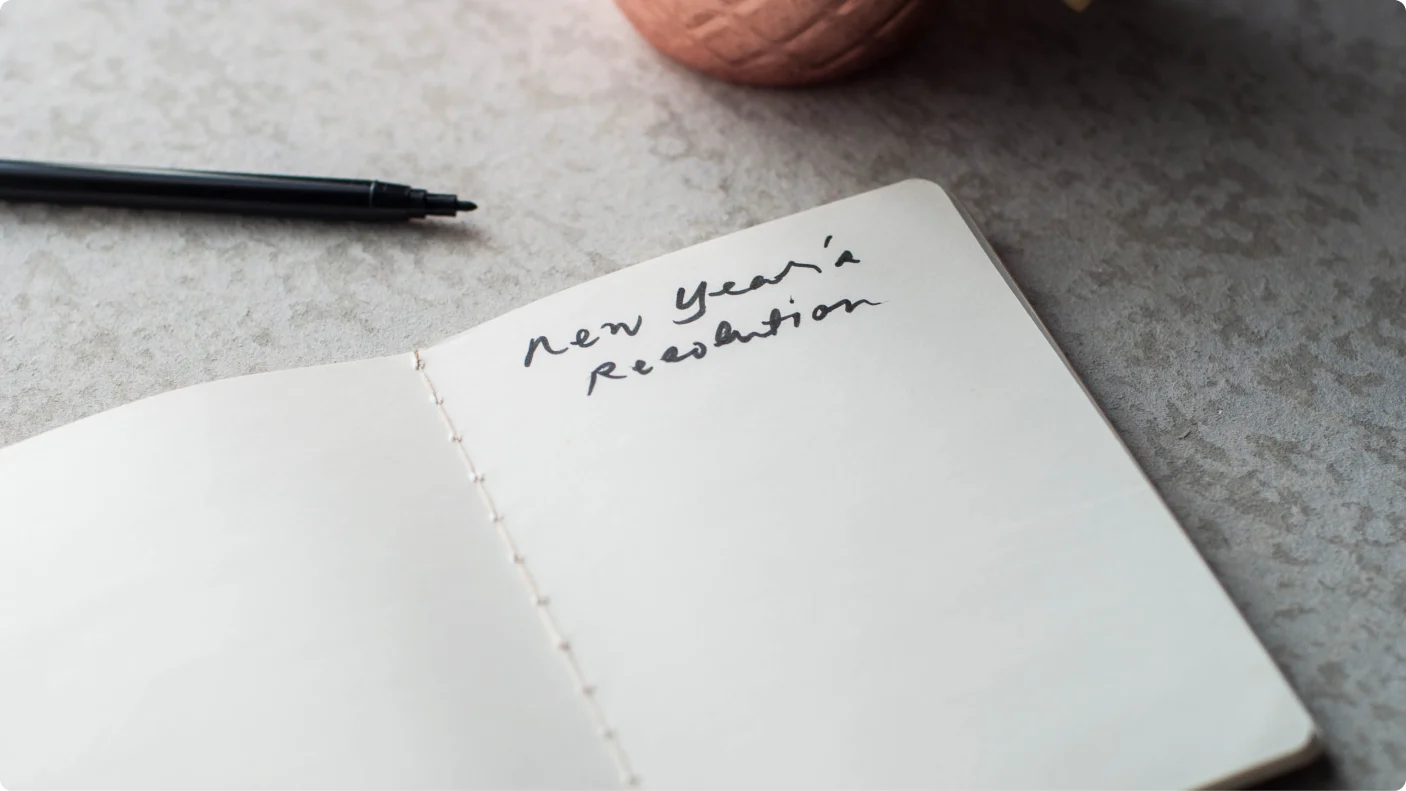 new year's
Resolution